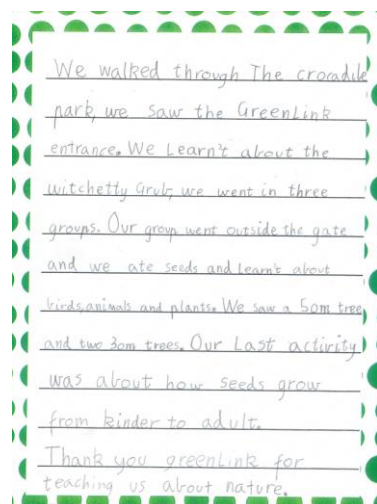 We walked through The crocadile
park, we saw the GreenLink
entrance. We Learn't about the
witchetty Grub, we went in three
groups. Our group went outside the gate
and we ate seeds and Learn't about
birds, animals and plants. We saw a 50m tree
and two 30m trees. Our Last activity
was about how seeds grow
from kinder to adult.
Thank you greenLink for
teaching us about nature.